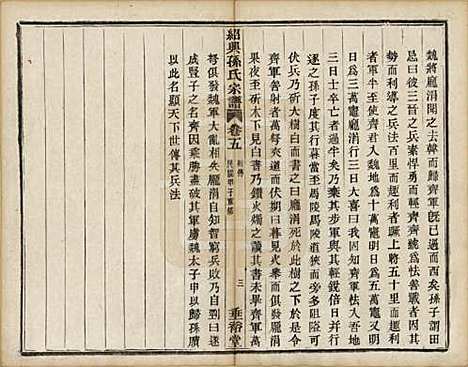 魏將龐涓聞之去韓而歸齊軍既已過而西矣孫子謂田
忌曰彼三晉之兵素悍勇而輕齊齊號為怯善戰者因其
勢而利導之兵法百里而趣利者蹶上將五十里而趣利
者軍半至使齊軍入魏地為十萬竈明日為五萬竈又明
日為三萬竈龐涓行三日大喜曰我固知齊軍怯入吾地
三日士卒亡者過半矣乃棄其步軍與其輕銳倍日并行
逐之孫子度其行暮當至馬陵馬陵道狹而旁多阻隘可
伏兵乃斫大樹白而書之曰龐涓死於此樹之下
果夜至斫木下見白書乃鑽火燭之讀其書未畢齊軍萬
弩俱發魏軍大亂相失龐涓自知智窮兵敗乃自剄曰遂
成豎子之名齊因乘勝盡破其軍虜魏太子申以歸孫臏
以此名顯天下世傳其兵法
紹興孫氏宗譜
卷五
三
垂裕堂